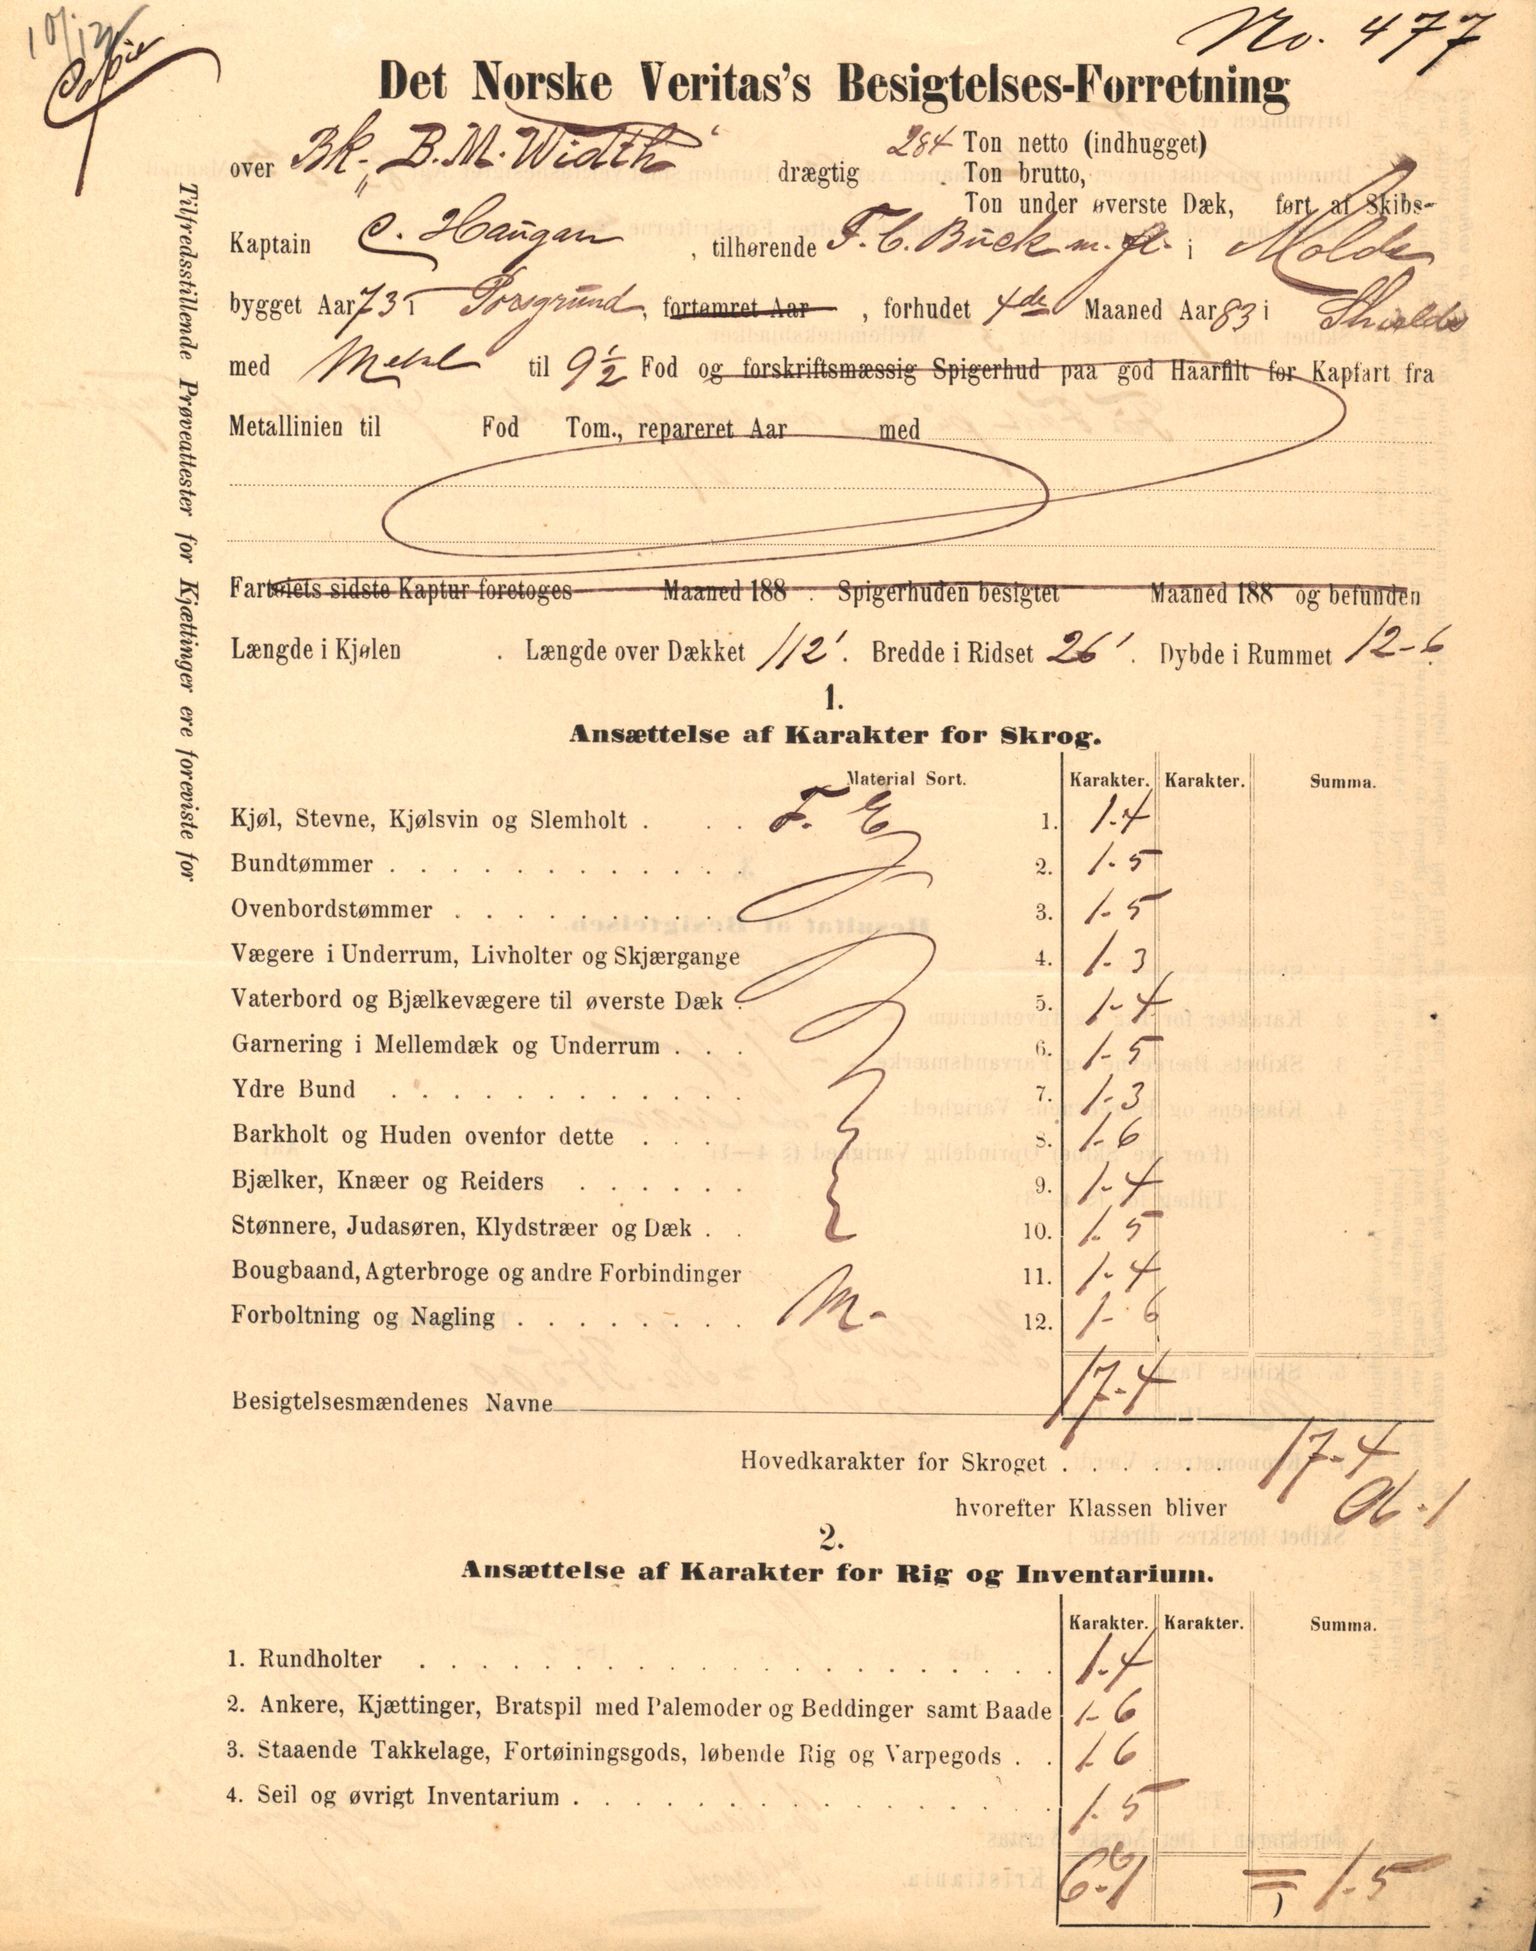 10/12
Copie
No. 477
Det Norske Veritas's Besigtelses-Forretning
over Bk. „B. M. Width“ drægtig 284 Ton netto (indhugget)
Ton brutto,
Ton under øverste Dæk, ført af Skibs-
Kaptain C. Haugan, tilhørende F. C. Buck m. fl. i Molde
bygget Aar 73 i Porsgrund, fortømret Aar , forhudet 4de Maaned Aar 83 i Shields
med Metal til 9½ Fod og forskriftsmæssig Spigerhud paa god Haarfilt for Kapfart fra
Metallinien til Fod Tom., repareret Aar med
Fartøiets sidste Kaptur foretoges Maaned 188 . Spigerhuden besigtet Maaned 188 og befunden
Længde i Kjølen . Længde over Dækket 112'. Bredde i Ridset 26'. Dybde i Rummet 12-6
1.
Ansættelse af Karakter for Skrog.
Material Sort. Karakter. Karakter. Summa.
Kjøl, Stevne, Kjølsvin og Slemholt . . . F. E 1. 1-4
Bundtømmer . . . . . . . . . . . . . 2. 1-5
Ovenbordstømmer . . . . . . . . . . 3. 1-5
Vægere i Underrum, Livholter og Skjærgange 4. 1-3
Vaterbord og Bjælkevægere til øverste Dæk . 5. 1-4
Garnering i Mellemdæk og Underrum . . . 6. 1-5
Ydre Bund . . . . . . . . . . . . . 7. 1-3
Barkholt og Huden ovenfor dette . . . 8. 1-6
Bjælker, Knæer og Reiders . . . . . . 9. 1-4
Stønnere, Judasøren, Klydstræer og Dæk . . 10. 1-5
Bougbaand, Agterbroge og andre Forbindinger 11. 1-4
Forboltning og Nagling . . . . . . . . M- 12. 1-6
17-4
Besigtelsesmændenes Navne
Hovedkarakter for Skroget . . . . . . 17-4
hvorefter Klassen bliver 1
2.
Ansættelse af Karakter for Rig og Inventarium.
Karakter. Karakter. Summa.
1. Rundholter . . . . . . . . . . . . . . . . . . . 1-4
2. Ankere, Kjættinger, Bratspil med Palemoder og Beddinger samt Baade 1-6
3. Staaende Takkelage, Fortøiningsgods, løbende Rig og Varpegods . . 1-6
4. Seil og øvrigt Inventarium . . . . . . . . . . . . . . 1-5
6-1 = 1-5
Tilfredsstillende Prøveattester for Kjættinger ere foreviste for